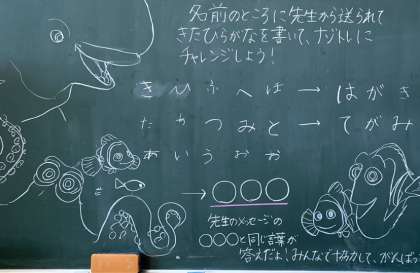 名前のところに先生から送られて
きたひらがなを書いて、ナゾトレに
チャレンジしよう！
き ひ ふ へ ほ → はがき
た か つ み と → てがみ
あ い う お か
さ → ○○○
先生のメッセージの
○○○と同じ言葉が
答えだよ！みんなで協力して、がんばっ